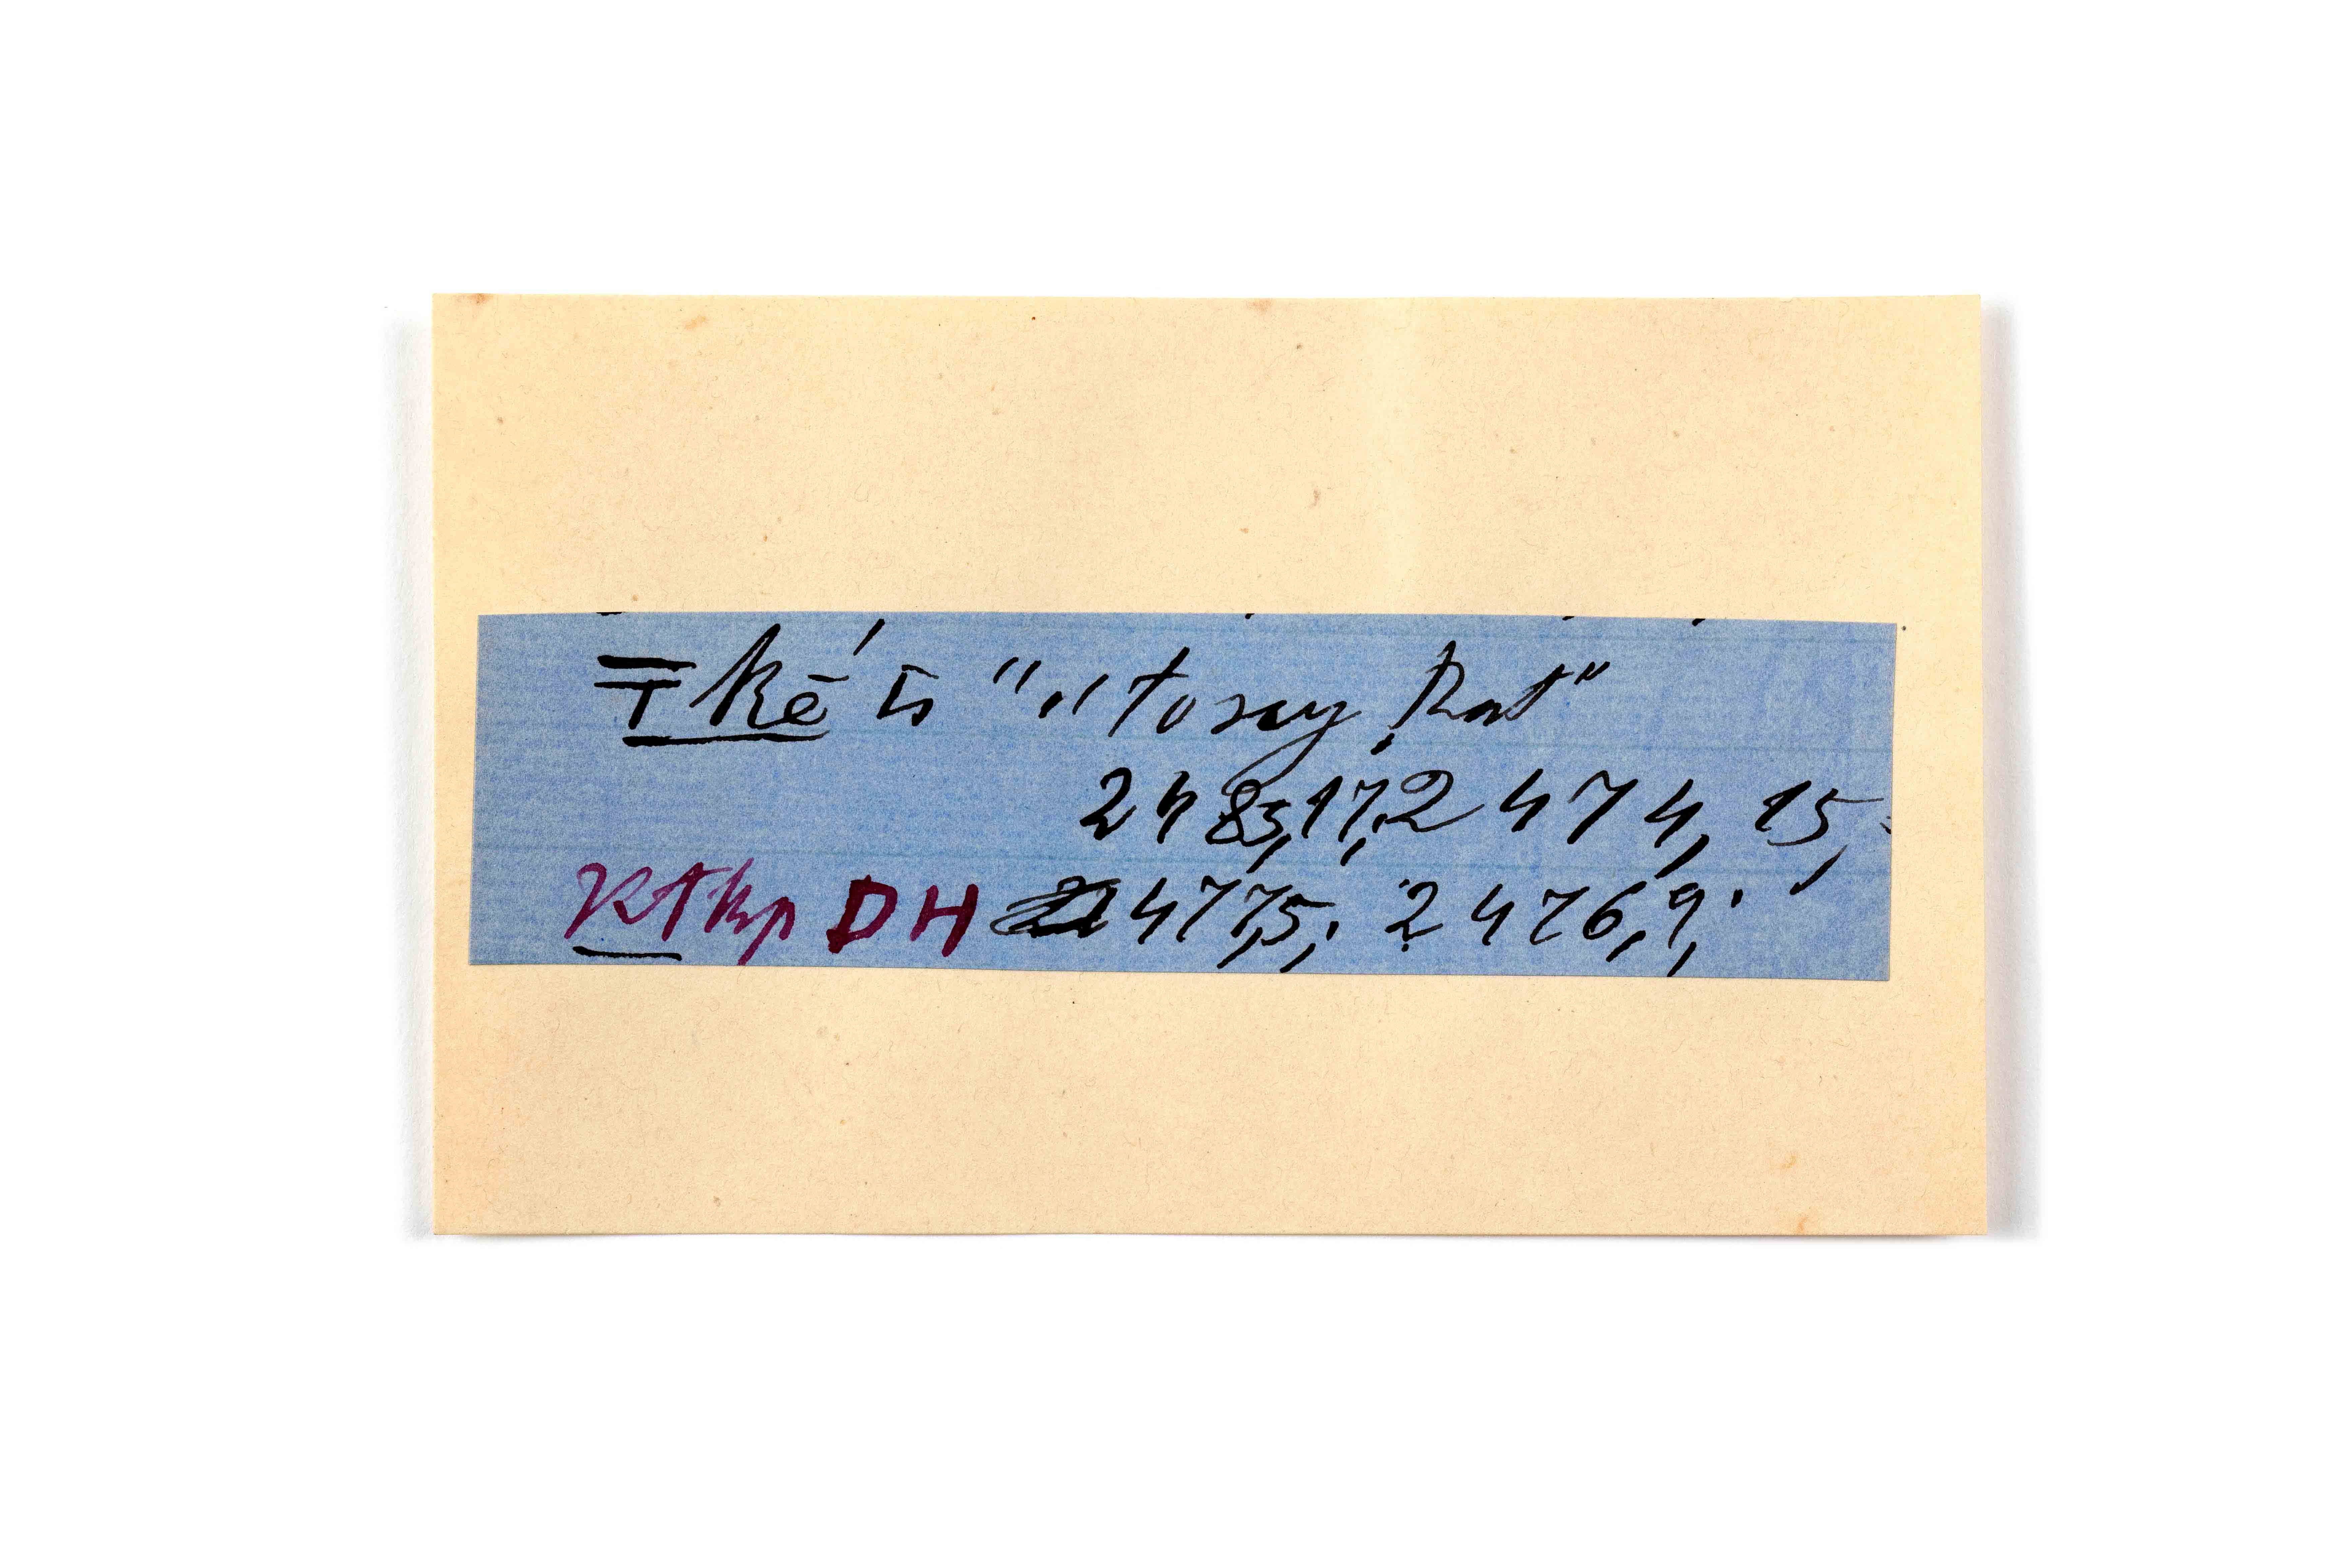 = T kē' ts " " to say that"
2483,17; 2474,15,
DH 2477,5,; 2476,9,;